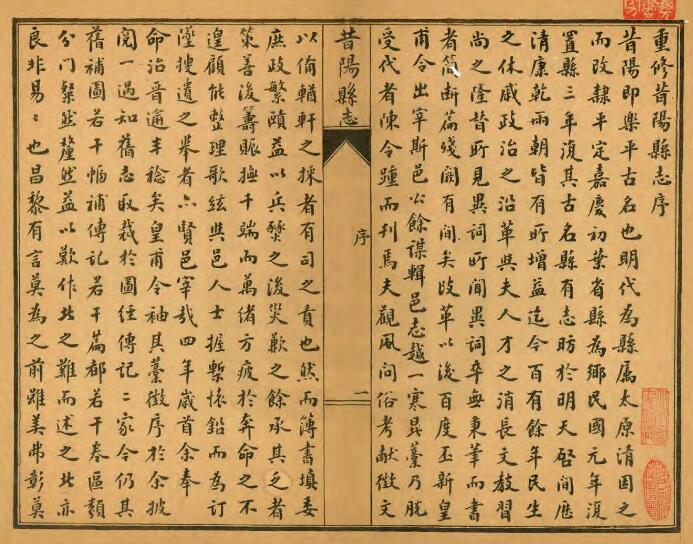 重修昔陽縣志序
昔陽即樂平古名也明代為縣屬太原清因之
而改隸平定嘉慶初葉省縣為鄉民國元年復
置縣三年復其古名縣有志昉於明天啓間歷
清康乾兩朝皆有所增益迄今百有餘年民生
之休戚政治之沿革與夫人才之消長文教習
尚之隆替所見異詞所聞異詞卒無秉筆而書
者簡斷篇殘闕有間矣改革以後百度丕新皇
甫令出宰斯邑公餘謀輯邑志越一寒暑藁乃脫
受代者陳令踵而刊焉夫觀風問俗考獻徵文
昔陽縣志
序
一
以備輶軒之採者有司之責也然而簿書填委
庶政繁賾益以兵燹之後災歉之餘承其乏者
策善後籌賑撫千端而萬緒方疲於奔命之不
遑顧能整理歌絃與邑人士握槧懷鉛而為訂
墜搜遺之舉者亦賢邑宰哉四年歲首余奉
命治晉逾年稔矣皇甫令袖其藁徵序於余披
閱一過知舊志取裁於圖經傳記二家今仍其
舊補圖若干幅補傳記若干篇都若干卷區類
分門粲然釐然益以歎作此之難而述之此亦
良非易易也昌黎有言莫為之前雖美弗彰莫